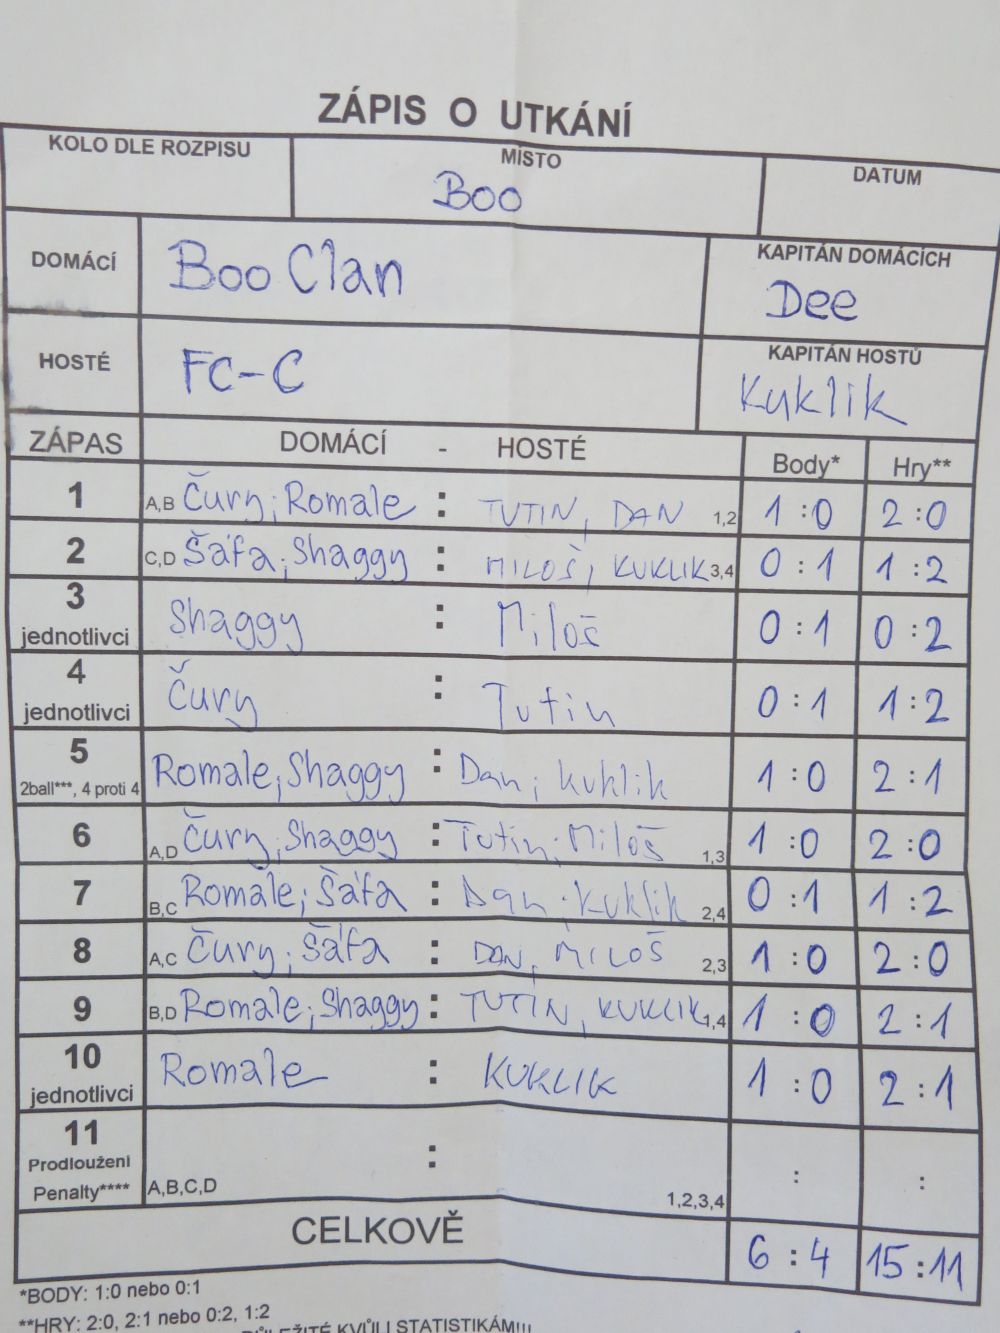 ZÁPIS O UTKÁNÍ
KOLO DLE ROZPISU MÍSTO DATUM
Boo
DOMÁCÍ Boo Clan KAPITÁN DOMÁCÍCH
Dee
HOSTÉ FC-C KAPITÁN HOSTŮ
Kuklik
ZÁPAS DOMÁCÍ - HOSTÉ Body* Hry**
1 A,B Čury; Romale : TUTIN, DAN 1,2 1:0 2:0
2 C,D Šáfa; Shaggy : MILOŠ, KUKLIK 3,4 0:1 1:2
3 jednotlivci Shaggy : Miloš 0:1 0:2
4 jednotlivci Čury : Tutin 0:1 1:2
5 2ball***, 4 proti 4 Romale; Shaggy : Dan; Kuklik 1:0 2:1
6 A,D Čury; Shaggy : Tutin; Miloš 1,3 1:0 2:0
7 B,C Romale; Šáfa : Dan; Kuklik 2,4 0:1 1:2
8 A,C Čury; Šáfa : DAN, MILOŠ 2,3 1:0 2:0
9 B,D Romale; Shaggy : TUTIN, KUKLIK 1,4 1:0 2:1
10 jednotlivci Romale : KUKLIK 1:0 2:1
11 Prodloužení Penalty**** A,B,C,D : 1,2,3,4 : :
CELKOVĚ 6:4 15:11
*BODY: 1:0 nebo 0:1
**HRY: 2:0, 2:1 nebo 0:2, 1:2
DŮLEŽITÉ KVŮLI STATISTIKÁM!!!